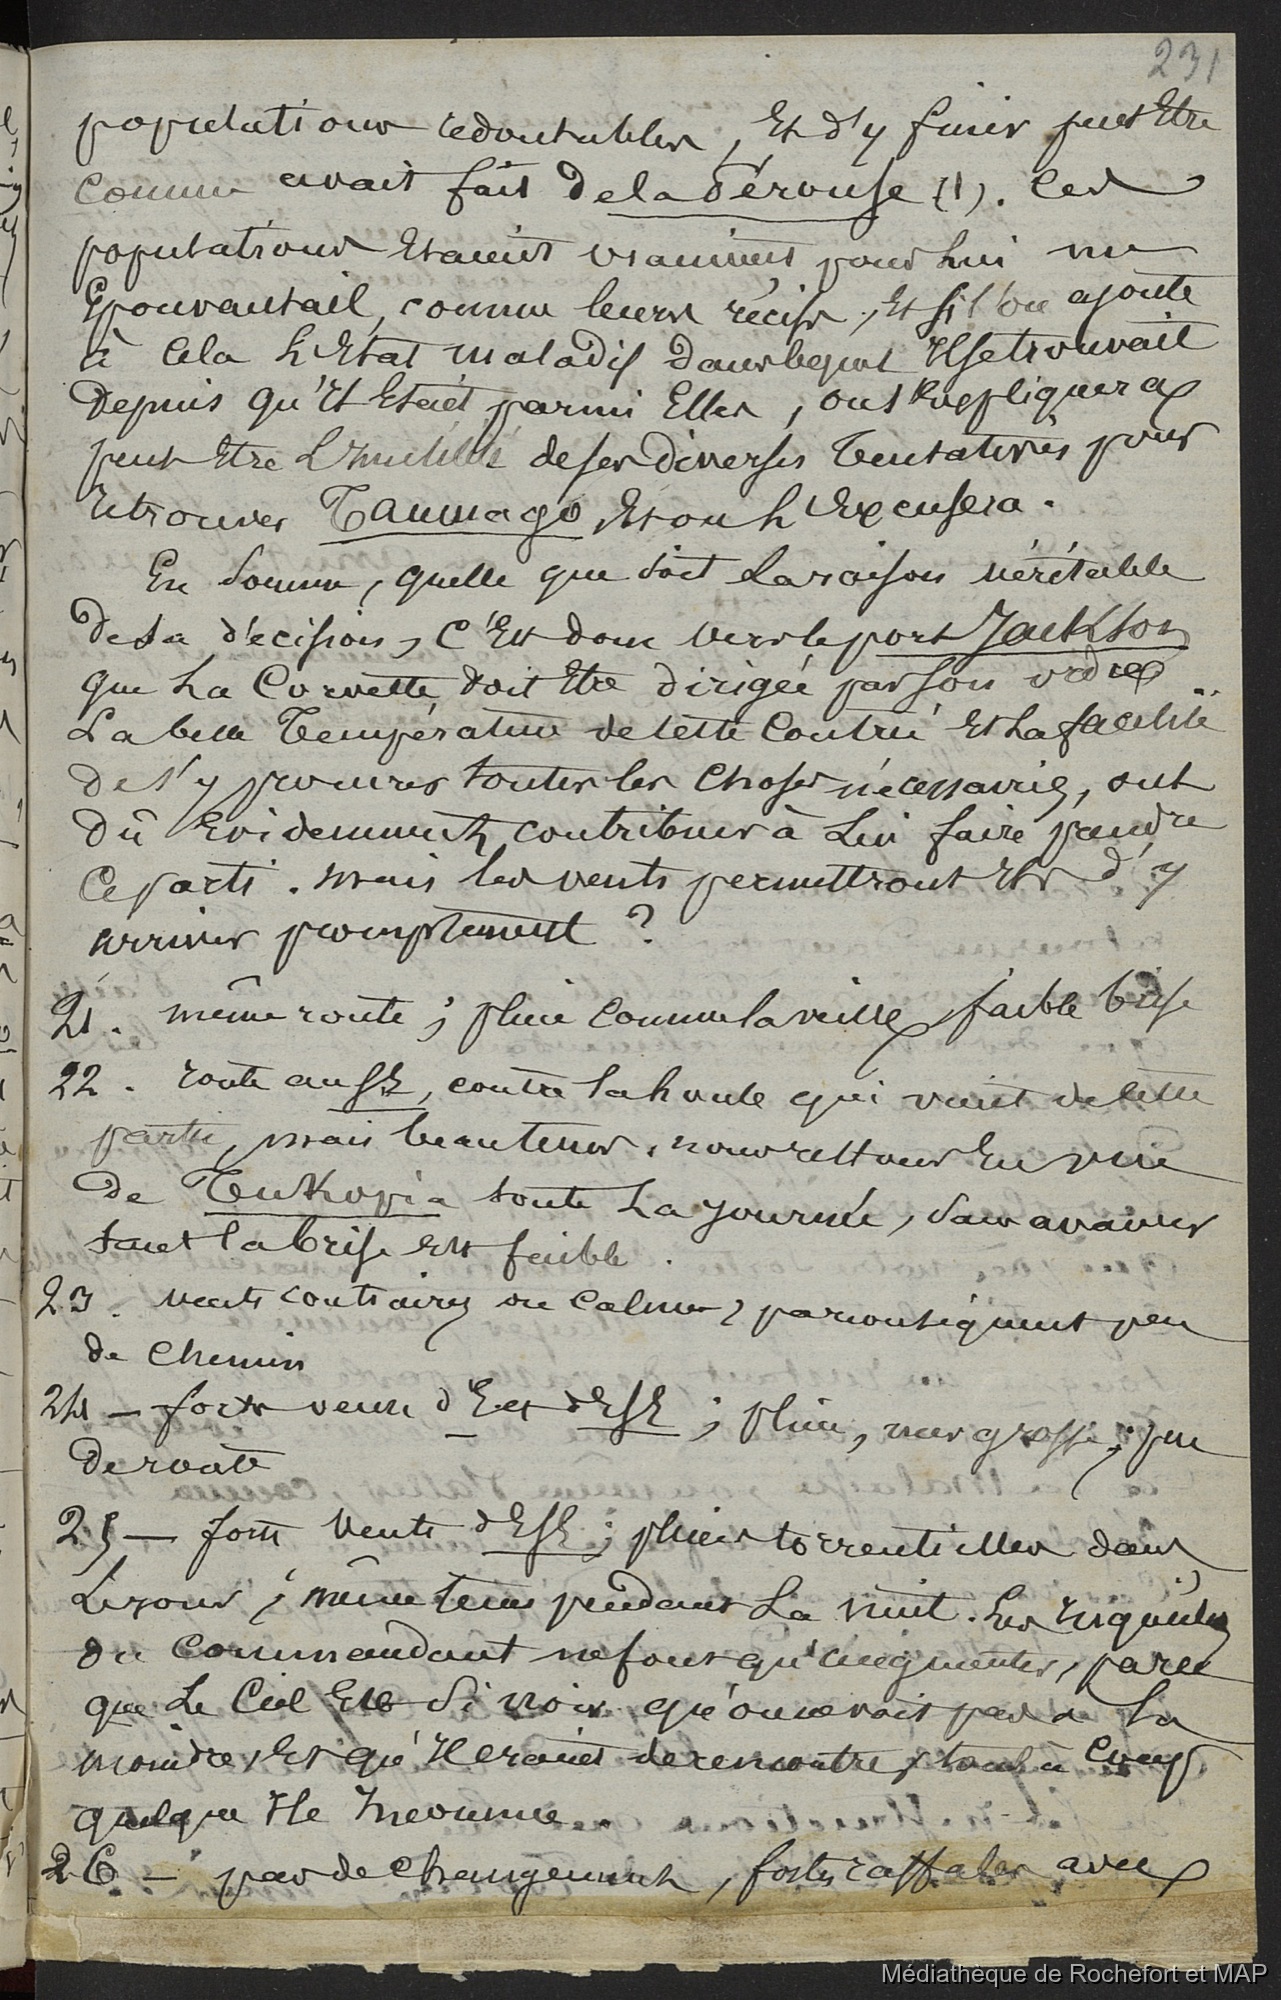 231
populations redoutables, Et d'y finir peut Etre
comme avait fait de la Pérouse (1). Ces
populations Etaient vraiment pour Lui un
Epouvantail, comme leurs récifs, Et si l'on ajoute
à cela L'Etat maladif dans lequel Il se trouvait
Depuis qu'Il Etait parmi Elles, on s'Expliquera
peut Etre L'inutilité de ses diverses Tentatives pour
retrouver Taumago, Et on L'Excusera.
En somme, quelle que soit La raison véritable
de sa décision, C'Est donc vers le port Jackson
que La Corvette doit Etre dirigée par son ordre
La belle Température de cette Contrée Et La facilité
de s'y procurer toutes les choses nécessaires, ont
dû Evidemment contribuer à Lui faire prendre
Ce parti. mais les vents permettront Ils d'y
arriver promptement ?
21. même route ; pluie comme la veille, faible brise
22. route au SE, contre la houle qui vient de cette
partie, mais beau tems. nous restons En vue
de Tukopia toute La journée, sans avancer
tant la brise Est faible.
23. vents contraires ou Calmes, par conséquent peu
de chemin
24 — forts vents d'E et d'ESE ; pluie, mer grosse ; peu
de route
25 — forts vents d'ESE ; pluies torrentielles dans
Le jour ; même tems pendant La nuit. Les Inquiétudes
du Commandant ne font qu'augmenter, parce
que Le Ciel Est si noir qu'on ne voit pas La
moindre, Et qu'Il craint de rencontrer, tout à coup
quelque Ile Inconnue.
26 — pas de changement, fortes raffales avec
Médiathèque de Rochefort et MAP